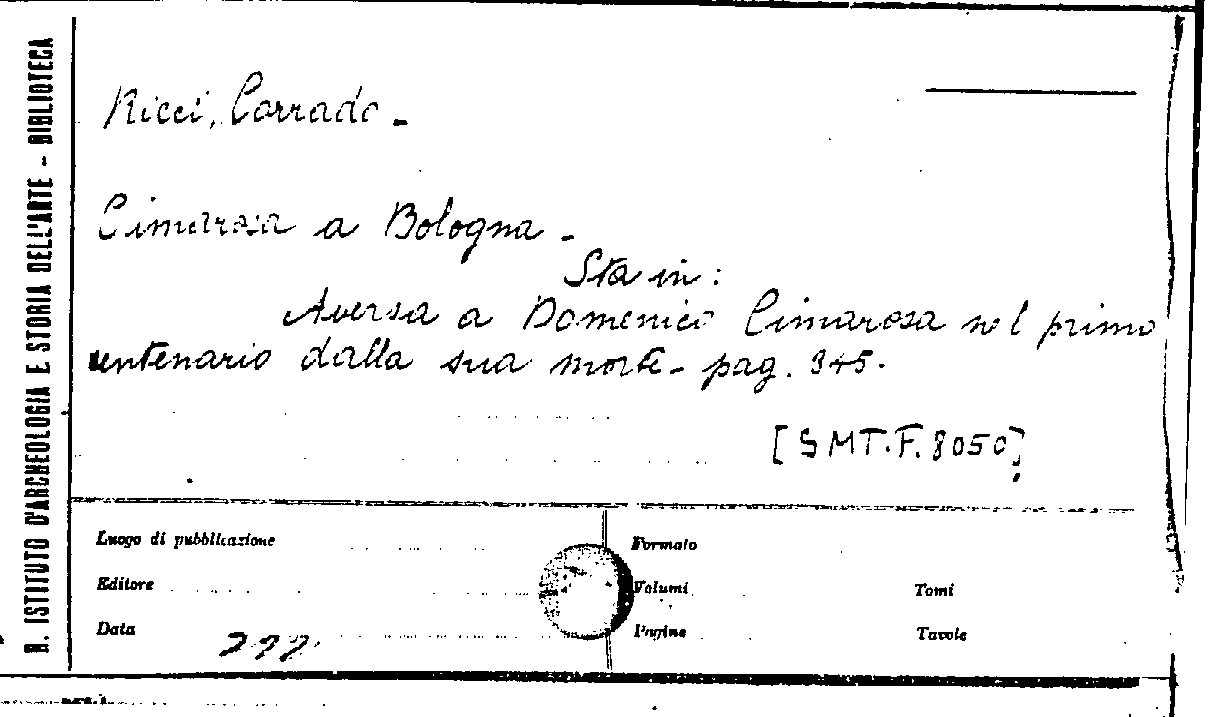 R. ISTITUTO D'ARCHEOLOGIA E STORIA DELL'ARTE - BIBLIOTECA
Ricci, Corrado -
Cimarosa a Bologna -
Sta in:
Aversa a Domenico Cimarosa nel primo
centenario dalla sua morte - pag. 345.
[SMT.F.8050]
Luogo di pubblicazione
Formato
Editore
Volumi
Tomi
Data
Pagine
Tavole